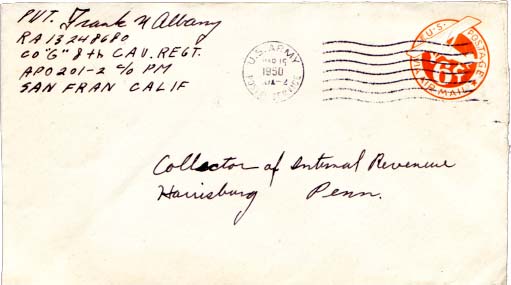 PVT. Frank N Albany
RA 13 248680
CO "G" 8th CAV. REGT.
APO 201-2 c/o PM
SAN FRAN CALIF
U.S. ARMY
MAR 15
1950
POSTAL SERVICE
U.S. POSTAGE
6¢
VIA AIR MAIL
Collector of Internal Revenue
Harrisburg Penn.